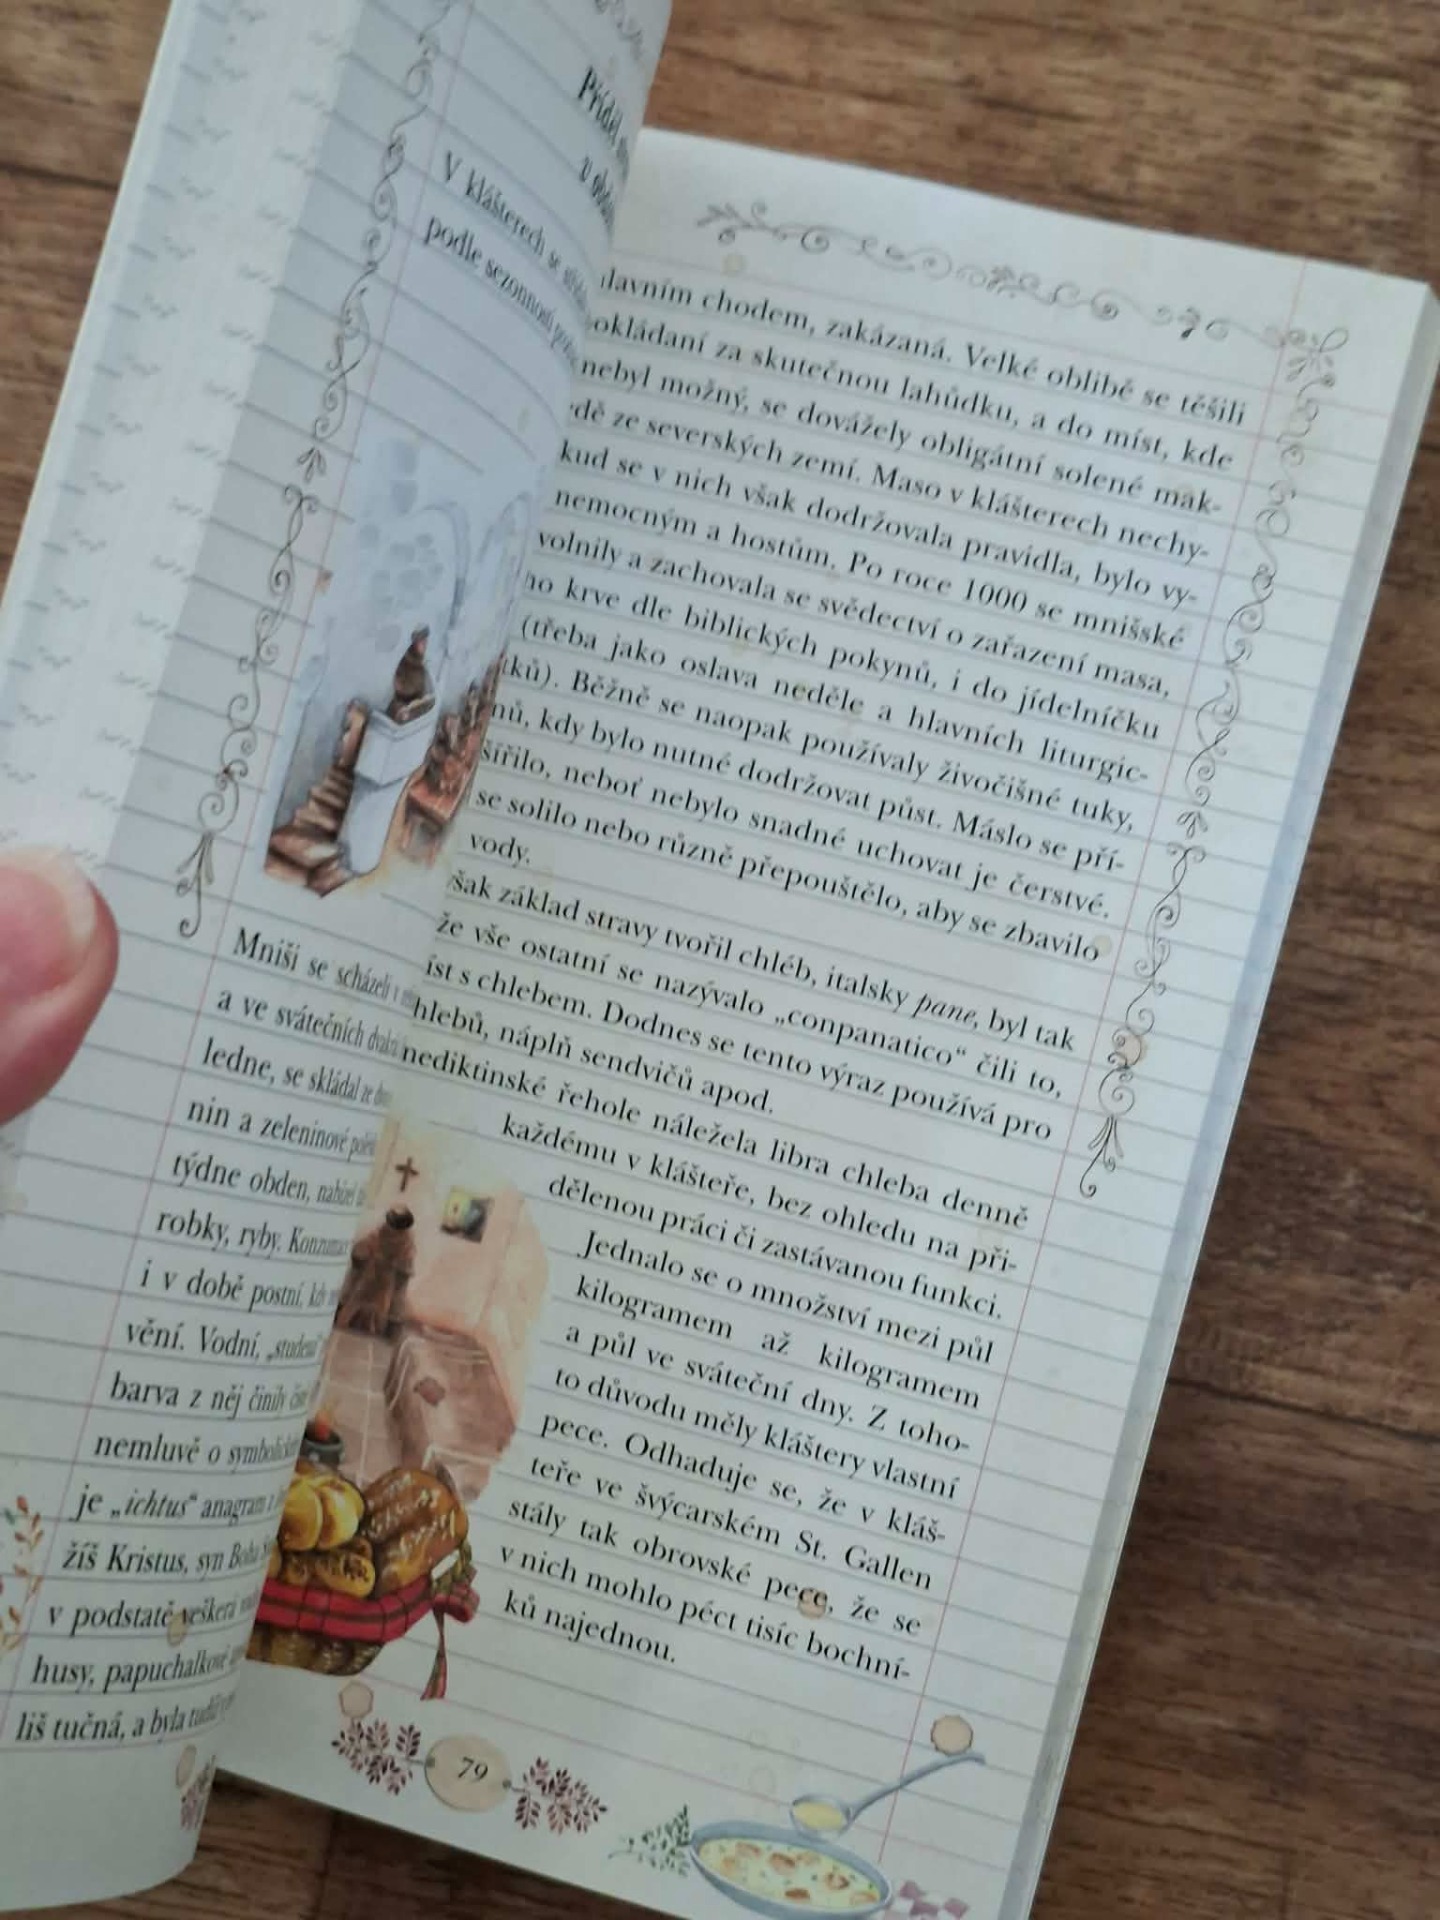 V klášterech se
podle sezonnosti
Mniši se scházeli v
a ve svátečních
ledne, se skládal ze
nin a zeleninové
týdne obden,
robky, ryby.
i v době postní,
vění. Vodní,
barva z něj činily
nemluvě o
je „ichtus“ anagram z
žíš Kristus, syn Boha
v podstatě veškerá
husy, papuchalkové
liš tučná, a byla tudíž
chodem, zakázaná. Velké oblibě se těšili
za skutečnou lahůdku, a do míst, kde
nebyl možný, se dovážely obligátní solené mak-
ze severských zemí. Maso v klášterech nechy-
kud se v nich však dodržovala pravidla, bylo vy-
nemocným a hostům. Po roce 1000 se mnišské
volnily a zachovala se svědectví o zařazení masa,
krve dle biblických pokynů, i do jídelníčku
(třeba jako oslava neděle a hlavních liturgic-
tků). Běžně se naopak používaly živočišné tuky,
nů, kdy bylo nutné dodržovat půst. Máslo se pří-
šířilo, neboť nebylo snadné uchovat je čerstvé.
se solilo nebo různě přepouštělo, aby se zbavilo
vody.
však základ stravy tvořil chléb, italsky pane, byl tak
že vše ostatní se nazývalo „conpanatico“ čili to,
íst s chlebem. Dodnes se tento výraz používá pro
hlebů, náplň sendvičů apod.
nediktinské řehole náležela libra chleba denně
každému v klášteře, bez ohledu na při-
dělenou práci či zastávanou funkci.
Jednalo se o množství mezi půl
kilogramem až kilogramem
a půl ve sváteční dny. Z toho-
to důvodu měly kláštery vlastní
pece. Odhaduje se, že v kláš-
teře ve švýcarském St. Gallen
stály tak obrovské pece, že se
v nich mohlo péct tisíc bochní-
ků najednou.
79